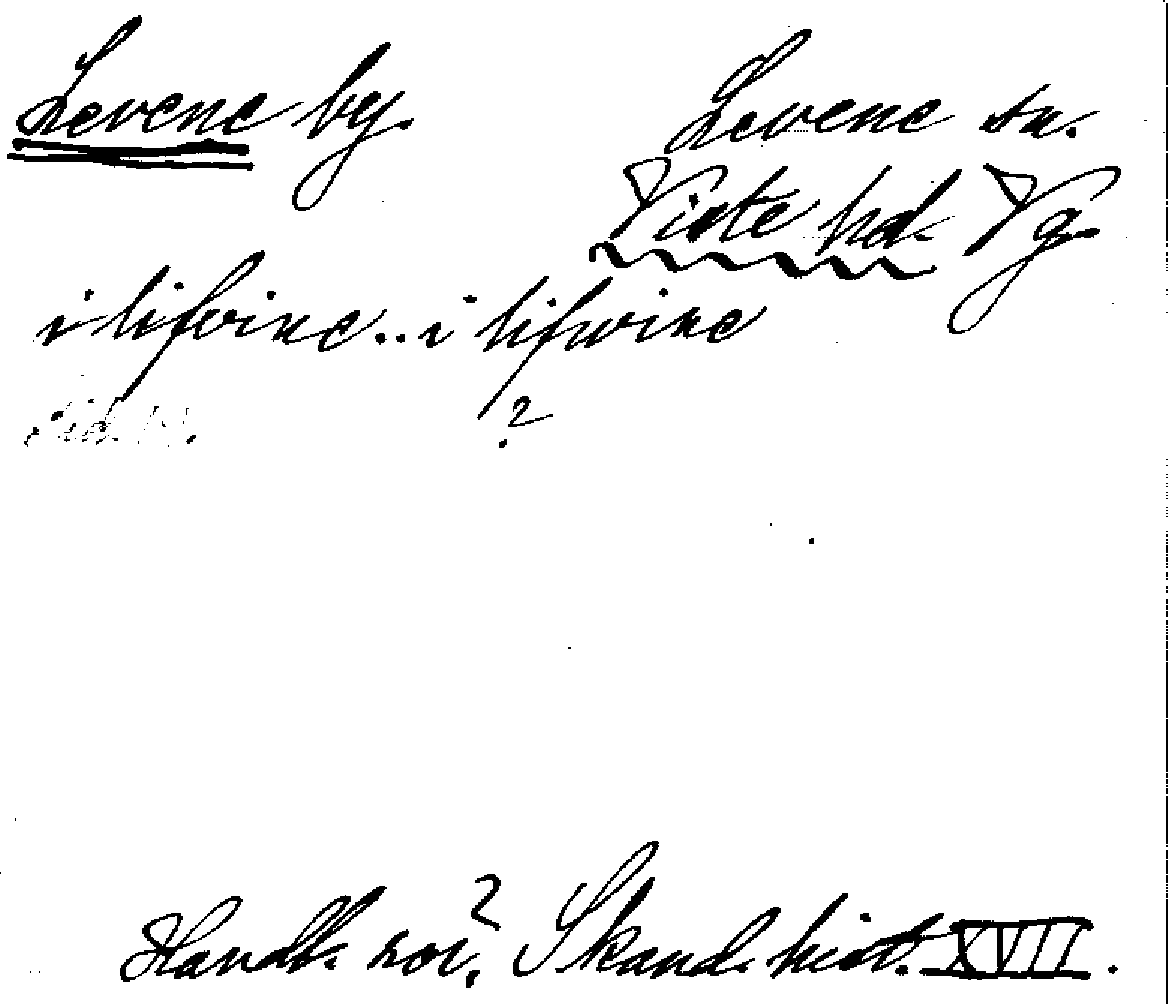 Levene by. Levene sn.
Viste hd. Vg.
i lifvine.. i lifwine
?
Handl. rör. Skand. hist. XVII.